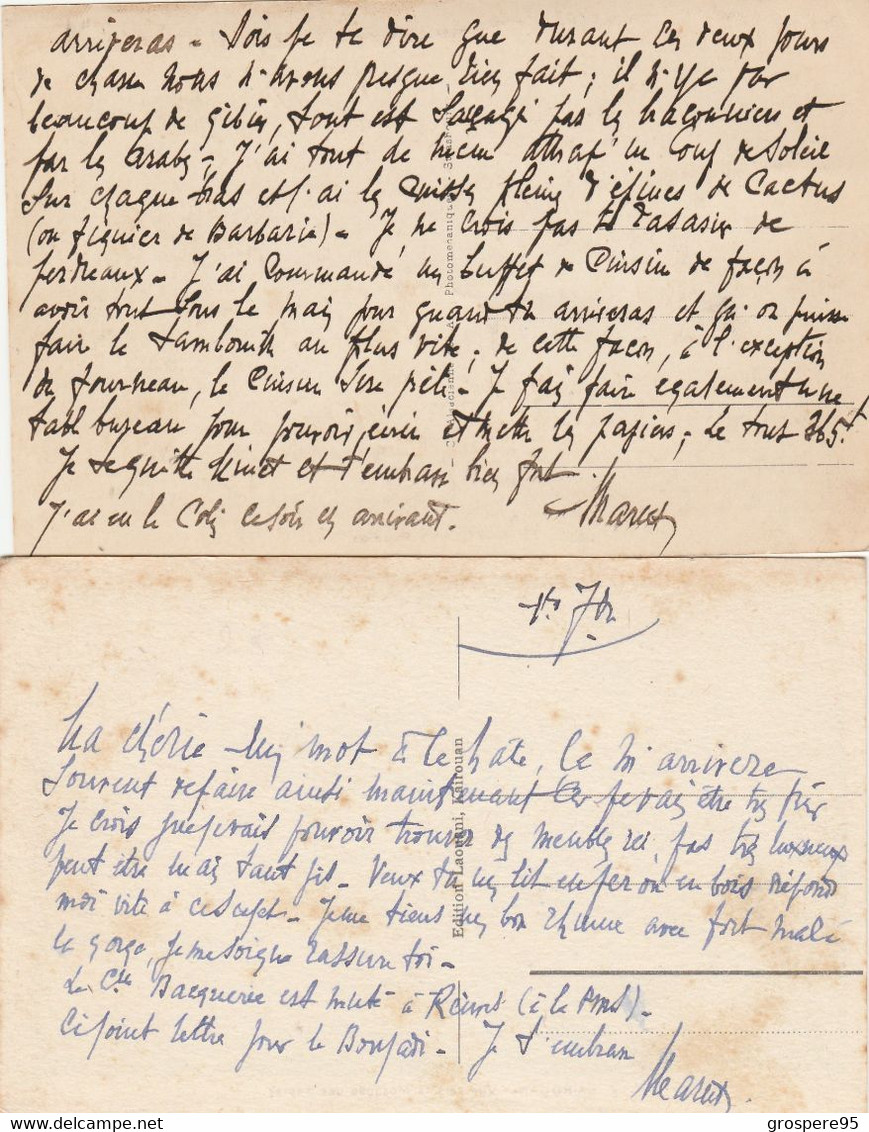 arriveras - Dois je te dire que durant ces deux jours
de chasse nous n'avons presque rien fait ; il n'y a pas
beaucoup de gibier, tout est saccagé par les braconniers et
par les arabes - J'ai tout de même attrapé un coup de soleil
sur chaque bras et j'ai les cuisses pleines d'épines de cactus
(ou figuier de Barbarie) - Je ne crois pas te de
perdreaux - J'ai commandé un buffet de cuisine de façon à
avoir tout sous la main pour quand tu arriveras et qu'on puisse
faire le au plus vite ; de cette façon, à l'exception
du fourneau, la cuisine sera prête - Je fais faire également une
table bureau pour pouvoir écrire et mettre les papiers, le tout 365f
Je te quitte Minet et t'embrasse bien fort
J'ai eu le colis ce soir en arrivant.
Photomécanique
Ma chérie - Un mot à la hâte, ça m'arrivera
souvent de faire ainsi maintenant car je vais être très pris
Je crois que je vais pouvoir trouver des meubles ici, pas très luxueux
peut être mais tant pis - Veux tu un lit en fer ou en bois réponds
moi vite à ce sujet - Je me tiens un bon rhume avec fort mal à
la gorge, je me soigne rassure toi -
Le Cne Bacquerie est muté à
Ci joint lettre pour le - Je t'embrasse
Edition Laouani, Kairouan
grospere95